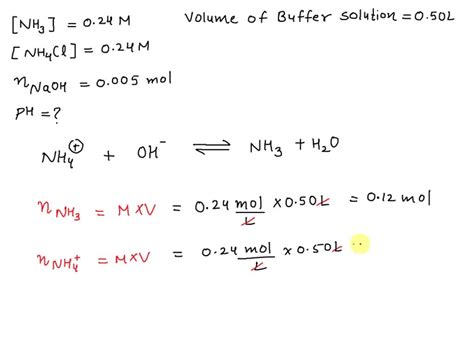 [NH₃] = 0.24 M    Volume of Buffer solution = 0.50L
[NH₄Cl] = 0.24 M
n NaOH = 0.005 mol
PH = ?
NH₄⊕ + OH⁻ ⇌ NH₃ + H₂O
n NH₃ = M×V = 0.24 mol/L × 0.50L = 0.12 mol
n NH₄⁺ = M×V = 0.24 mol/L × 0.50L